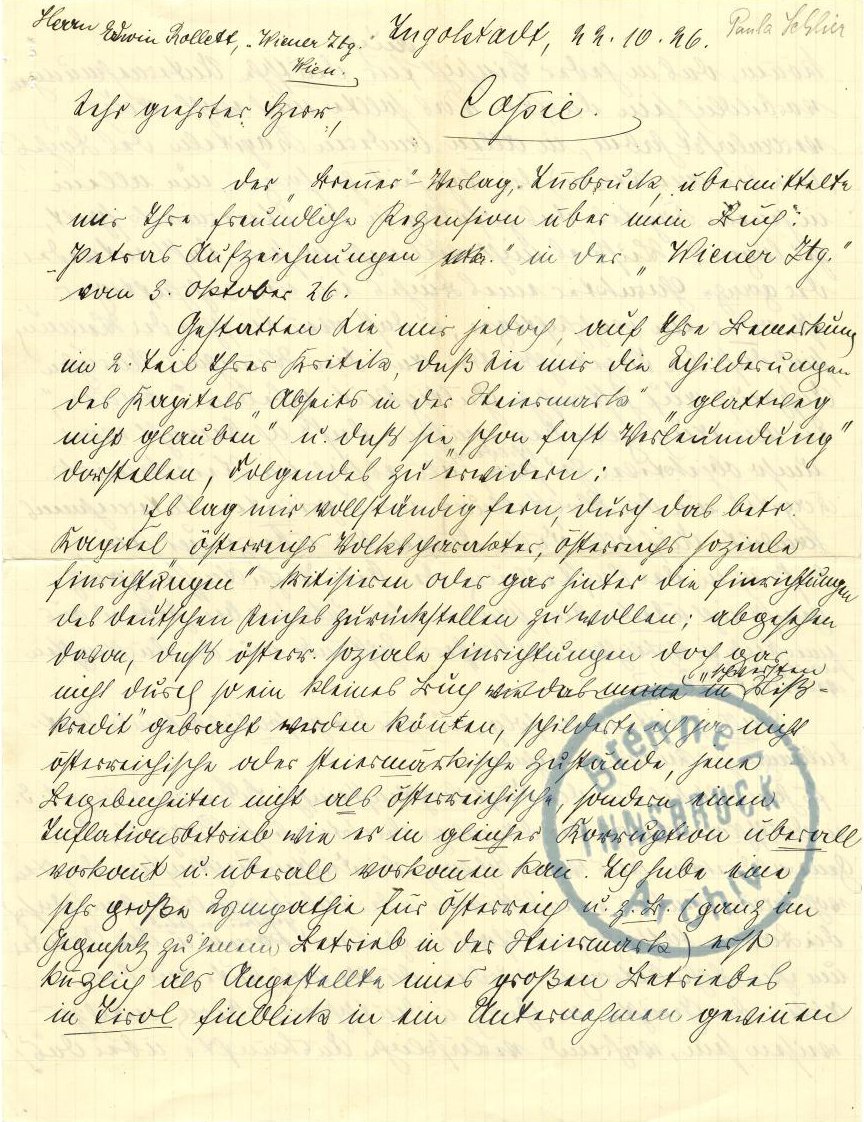 Herrn Edwin Rollett, „Wiener Ztg."
Wien.
Ingolstadt, 22.10.26.
Paula Schlier
Sehr geehrter Herr,
Copie.
der „Brenner"-Verlag, Innsbruck, übermittelte
mir Ihre freundliche Rezension über mein Buch:
„Petras Aufzeichnungen etc." in der „Wiener Ztg."
vom 3. Oktober 26.
Gestatten Sie mir jedoch, auf Ihre Bemerkung
im 2. Teil Ihrer Kritik, daß Sie mir die Schilderungen
des Kapitels „Abseits in der Steiermark" „glattweg
nicht glauben" u. daß sie „schon fast Verleumdung"
darstellen, Folgendes zu erwidern:
Es lag mir vollständig fern, durch das betr.
Kapitel „österreichs Volkscharakter, österreichs soziale
Einrichtungen" kritisieren oder gar hinter die Einrichtungen
des deutschen Reiches zurückstellen zu wollen; abgesehen
davon, daß österr. soziale Einrichtungen doch gar
nicht durch so ein kleines Buch wie das meine in „schwersten Miß-
kredit" gebracht werden könnten, schilderte ich ja nicht
österreichische oder steiermärkische Zustände, jene
Begebenheiten nicht als österreichische, sondern einen
Inflationsbetrieb wie er in gleicher Korruption überall
vorkommt u. überall vorkommen kann. Ich habe eine
sehr große Sympathie für Österreich u. z.B. (ganz im
Gegensatz zu jenem Betrieb in der Steiermark) erst
kürzlich als Angestellte eines großen Betriebes
in Tirol Einblick in ein Unternehmen gewinnen
Brenner-
INNSBRUCK
Archiv